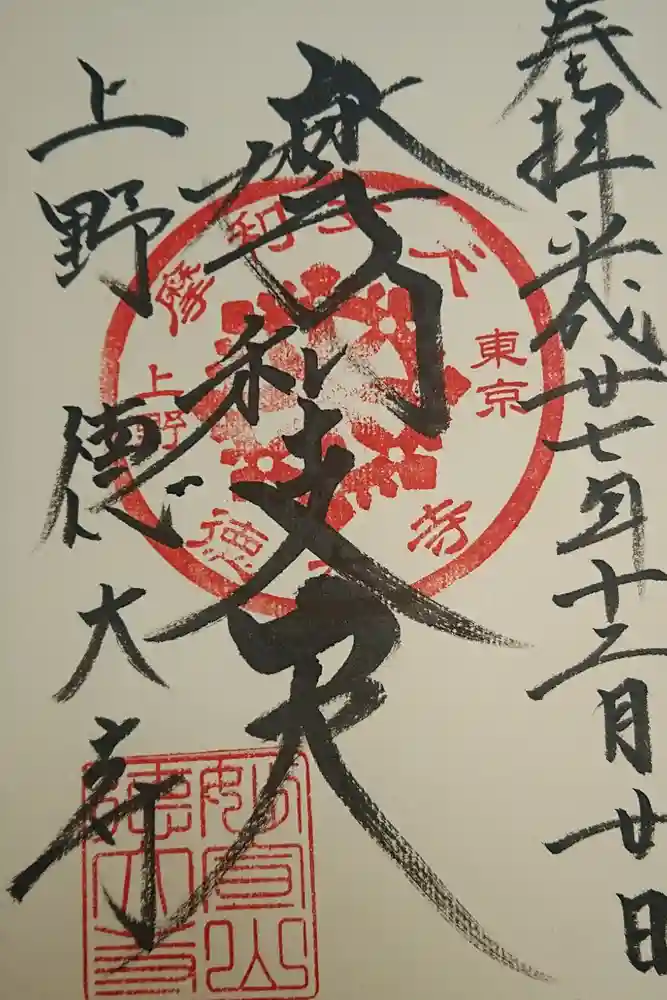 奉拝 平成廿七年十二月廿日
摩利支天
上野 徳大寺
摩利支天
東京
上野
徳大寺
妙宣山
徳大寺